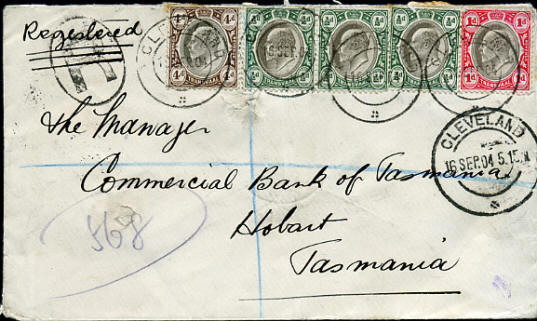 Registered
4d 4d
½d ½d
½d ½d
½d ½d
1d 1d
TRANSVAAL
CLEVELAND
16 SEP. 04
The Manager
CLEVELAND
16 SEP. 04 5.15
Commercial Bank of Tasmania,
568
Hobart
Tasmania